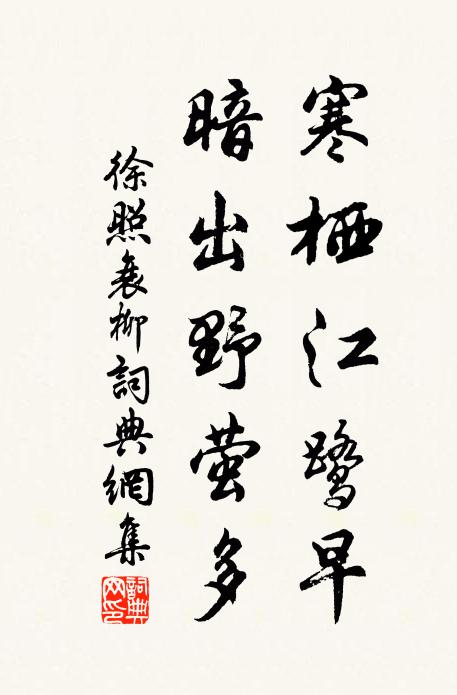 寒栖江鹭早
暗出野萤多
徐照衰柳詞典網集
詞典网印